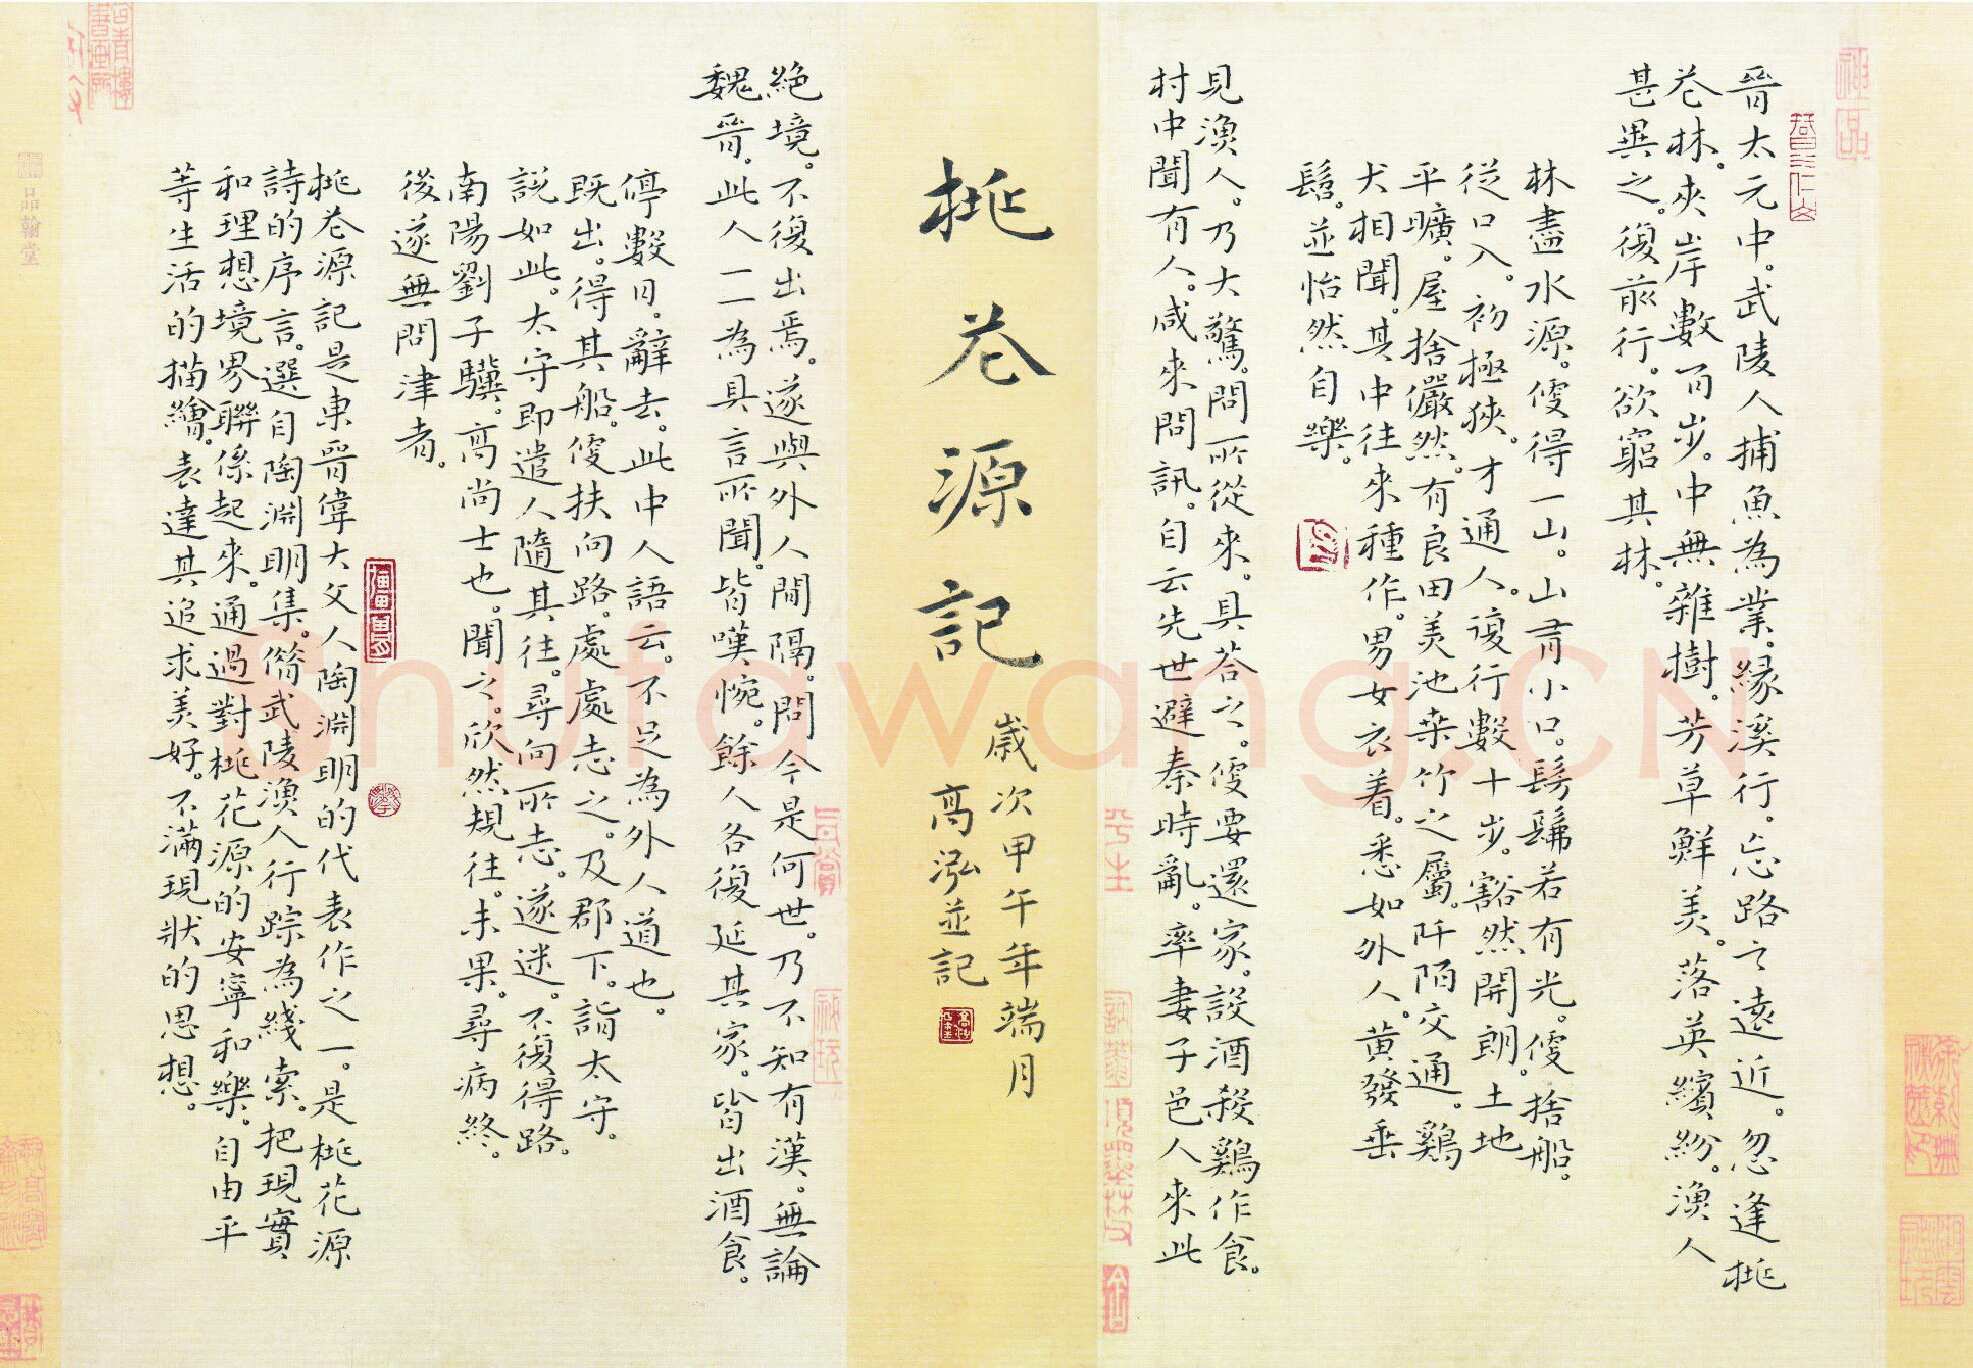 晉太元中。武陵人捕魚為業。緣溪行。忘路之遠近。忽逢桃
花林。夾岸數百步。中無雜樹。芳草鮮美。落英繽紛。漁人
甚異之。復前行。欲窮其林。
林盡水源。便得一山。山有小口。髣髴若有光。便捨船。
從口入。初極狹。才通人。復行數十步。豁然開朗。土地
平曠。屋捨儼然。有良田美池桑竹之屬。阡陌交通。鷄
犬相聞。其中往來種作。男女衣着。悉如外人。黃發垂
髫。並怡然自樂。
見漁人。乃大驚。問所從來。具荅之。便要還家。設酒殺鷄作食。
村中聞有人。咸來問訊。自云先世避秦時亂。率妻子邑人來此
桃花源記
歲次甲午年端月
高泓並記
絕境。不復出焉。遂與外人間隔。問今是何世。乃不知有漢。無論
魏晉。此人一一為具言所聞。皆嘆惋。餘人各復延其家。皆出酒食。
停數日。辭去。此中人語云。不足為外人道也。
既出。得其船。便扶向路。處處志之。及郡下。詣太守。
說如此。太守即遣人隨其往。尋向所志。遂迷。不復得路。
南陽劉子驥。高尚士也。聞之。欣然規往。未果。尋病終。
後遂無問津者。
桃花源記是東晉偉大文人陶淵明的代表作之一。是桃花源
詩的序言。選自陶淵明集。借武陵漁人行踪為綫索。把現實
和理想境界聯係起來。通過對桃花源的安寧和樂。自由平
等生活的描繪。表達其追求美好。不滿現狀的思想。
品翰堂
Shufawang.CN